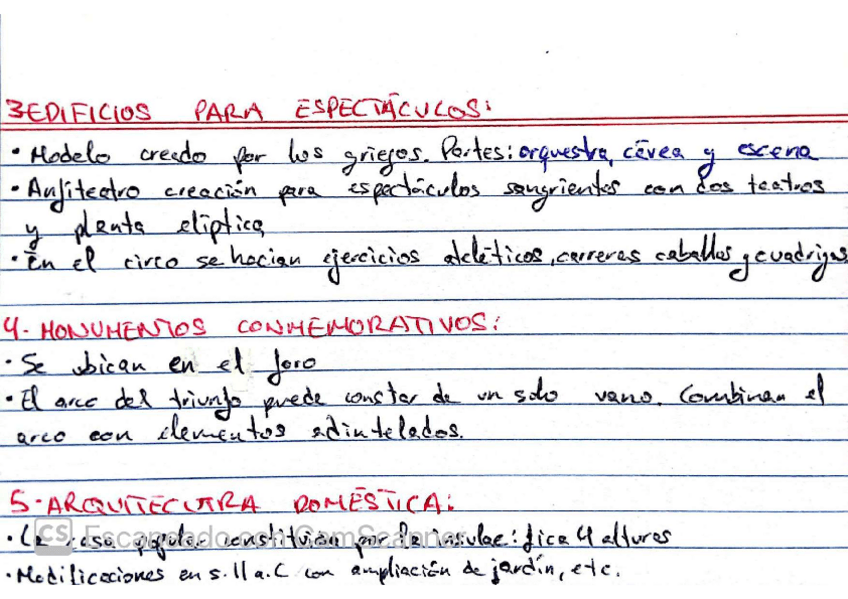 3EDIFICIOS PARA ESPECTÁCULOS:
• Modelo creado por los griegos. Partes: orquestra, cávea y escena
• Anfiteatro creación para espectáculos sangrientos con dos teatros
y planta elíptica
• En el circo se hacian ejercicios atcléticos, carreras caballos y cuadrigas
4- MONUMENTOS CONMEMORATIVOS:
• Se ubican en el foro
• El arco del triunfo puede constar de un solo vano. Combinan el
arco con elementos adintelados.
5-ARQUITECTURA DOMÉSTICA:
• La casa popular constituida por la insulae: 4 alturas
CS Escaneado con CamScanner
• Modificaciones en s. II a.C con ampliación de jardín, etc.